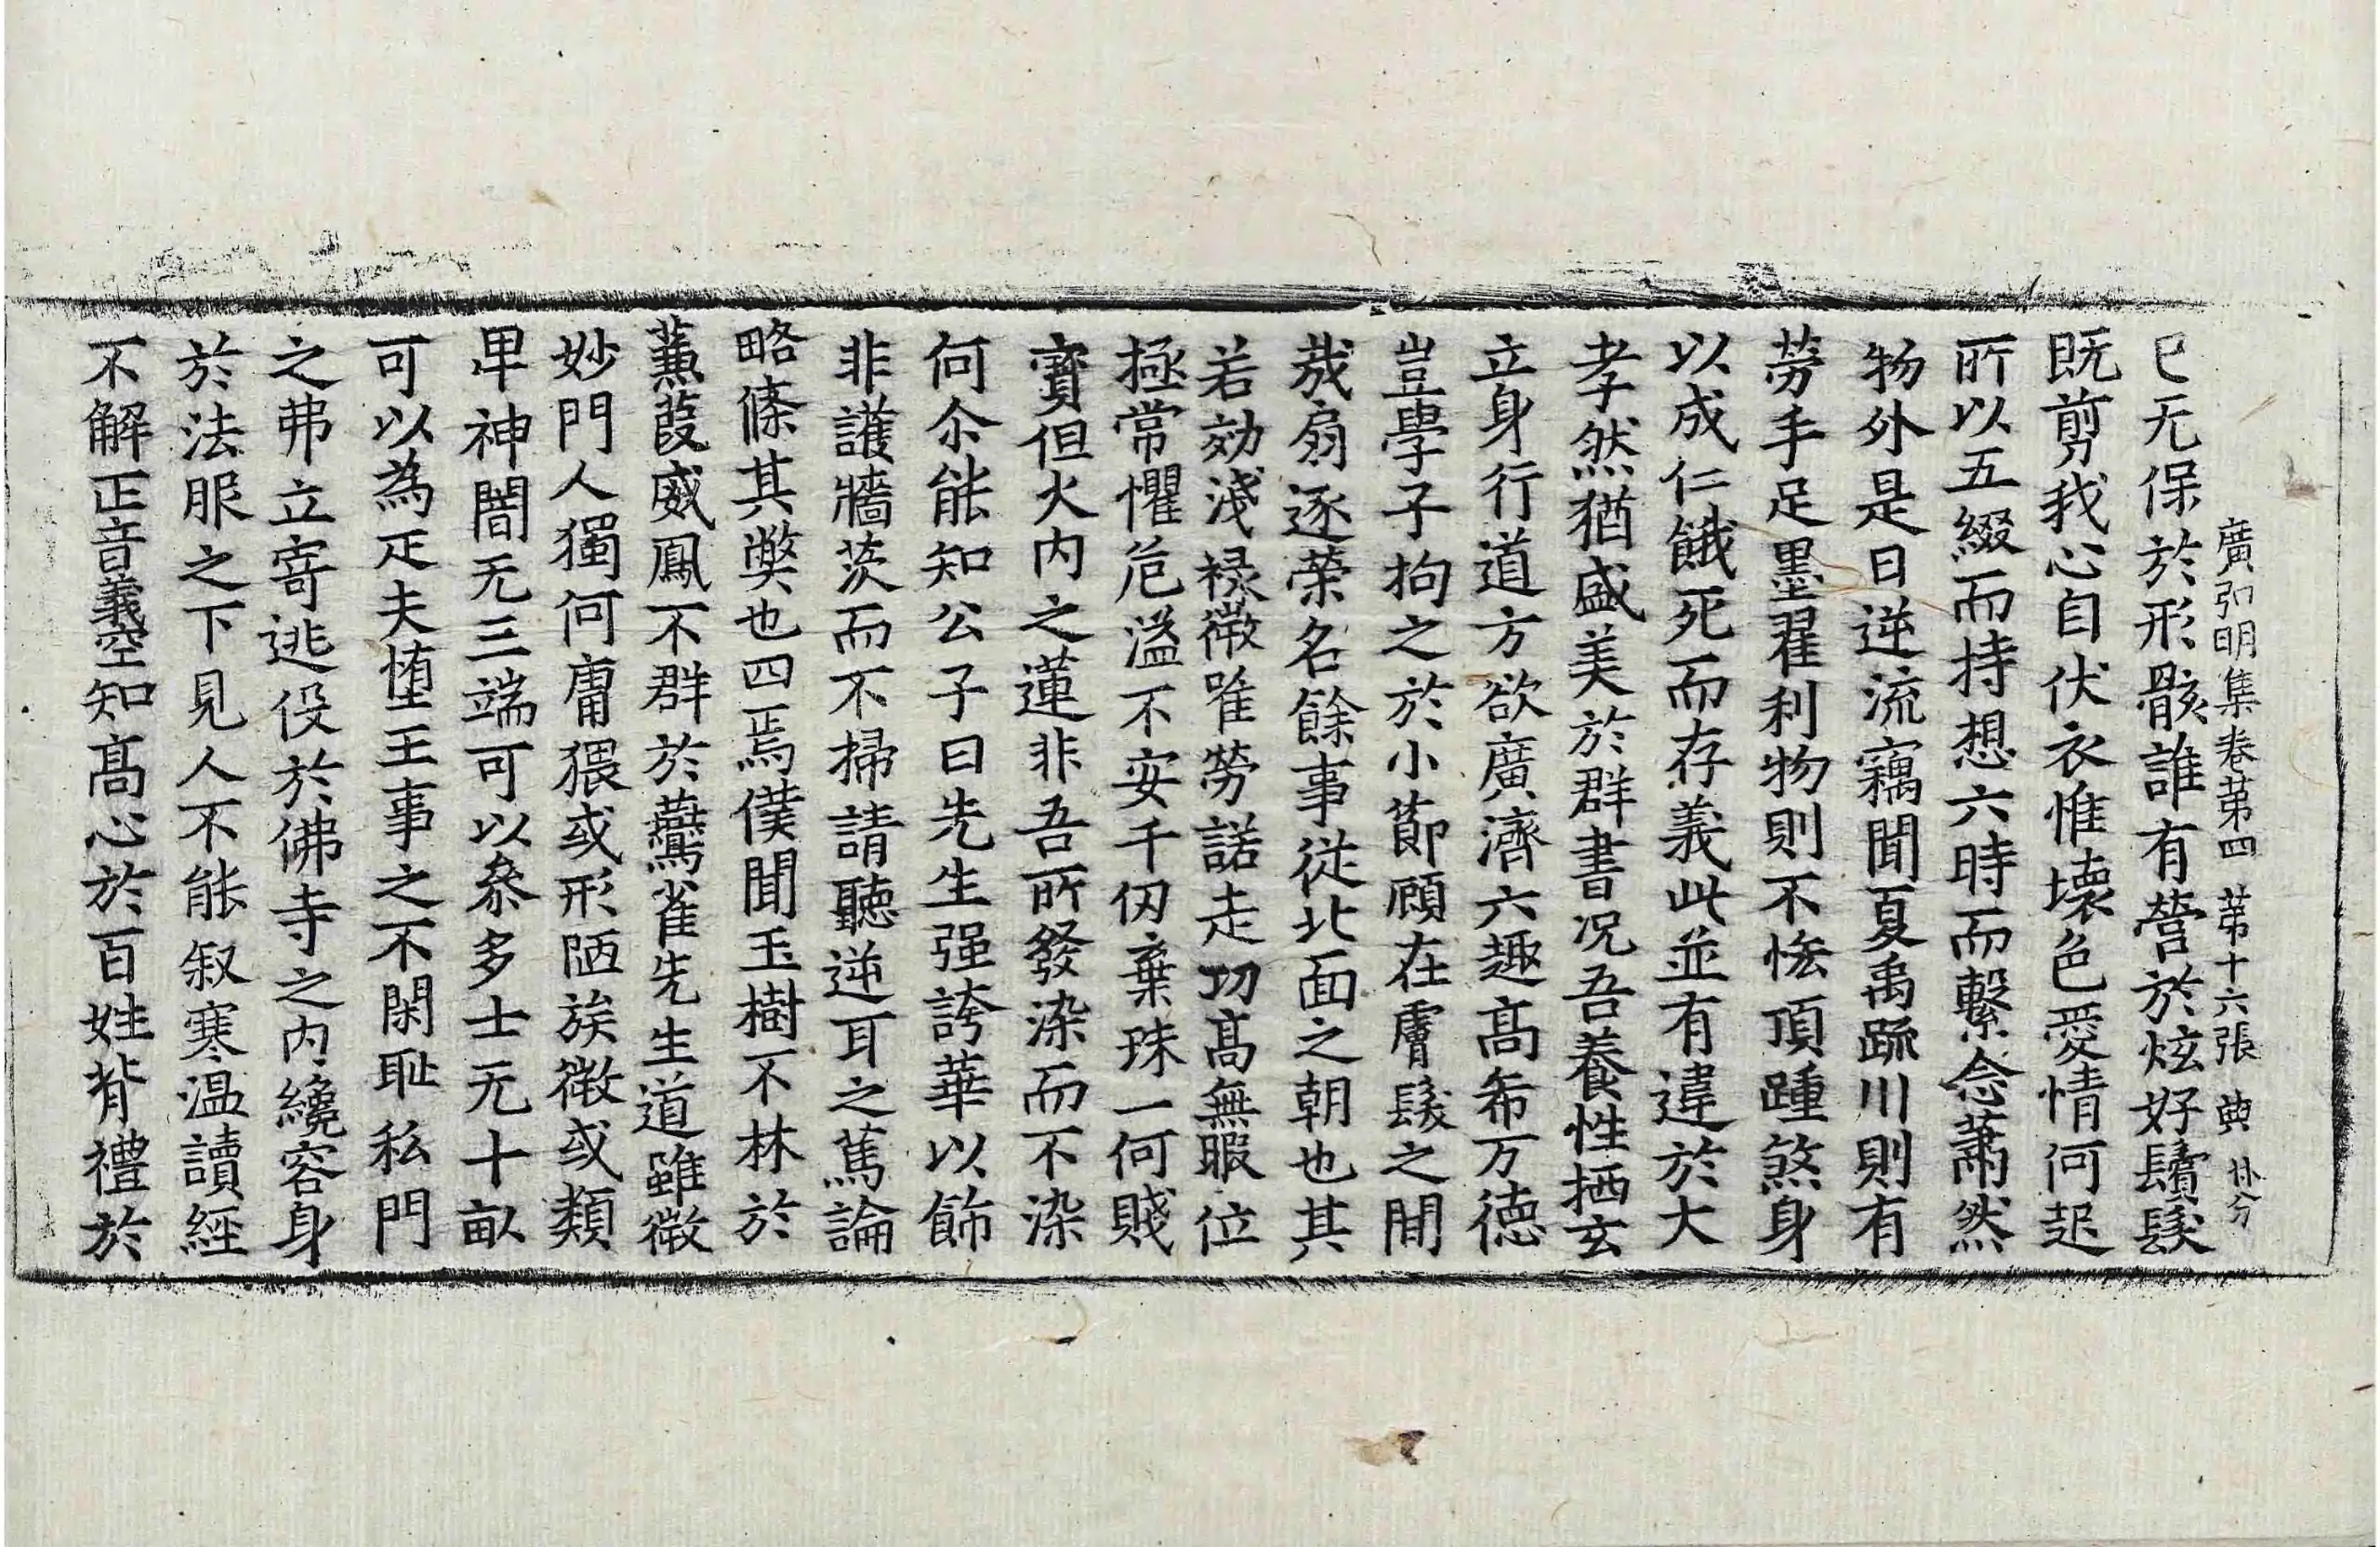 廣弘明集卷第四 第十六張 典
已无保於形骸誰有營於炫好鬚髮
既剪我心自伏衣惟壊色愛情何起
所以五綴而持想六時而繫念蕭然
物外是日逆流竊聞夏禹䟽川則有
勞手足墨翟利物則不恡頂踵煞身
以成仁餓死而存義此並有違於大
孝然猶盛美於群書况吾養性栖玄
立身行道方欲廣濟六趣髙希万徳
豈學子拘之於小莭顧在膚髮之間
㦲扇逐榮名餘事従北面之朝也其
若効淺禄微唯勞諾走功髙無暇位
極常懼危溢不安千仭棄珠一何賤
寳但火内之蓮非吾所發染而不染
何尒能知公子曰先生强誇華以飾
非護牆茨而不掃請聽逆耳之篤論
略條其弊也四焉僕聞玉樹不林於
蒹葭威鳳不群於鷰雀先生道雖微
妙門人獨何庸猥或形陋族微或類
卑神闇无三端可以叅多士无十畝
可以為疋夫堕王事之不閑耻私門
之弗立寄逃伇於佛寺之内纔容身
於法服之下見人不能叙寒温讀經
不解正音義空知髙心於百姓背禮於